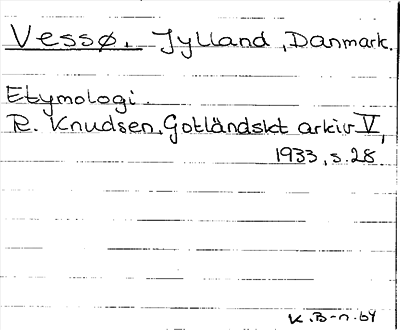 Vessø. Jylland, Danmark.
Etymologi.
R. Knudsen, Gotländskt arkiv V,
1933, s. 28.
K. B-n. 64